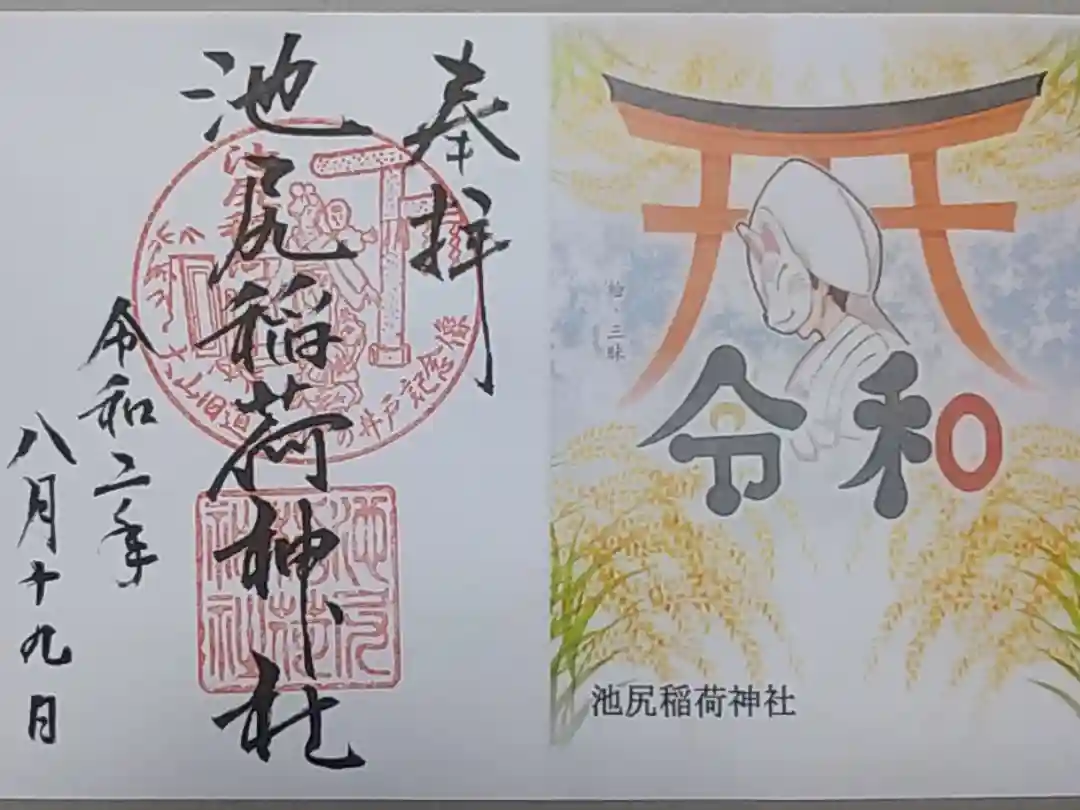 奉拝
池尻稲荷神社
令和二年
八月十九日
大山旧道
の井戸記念像
池尻
稲荷
神社
令和
池尻稲荷神社